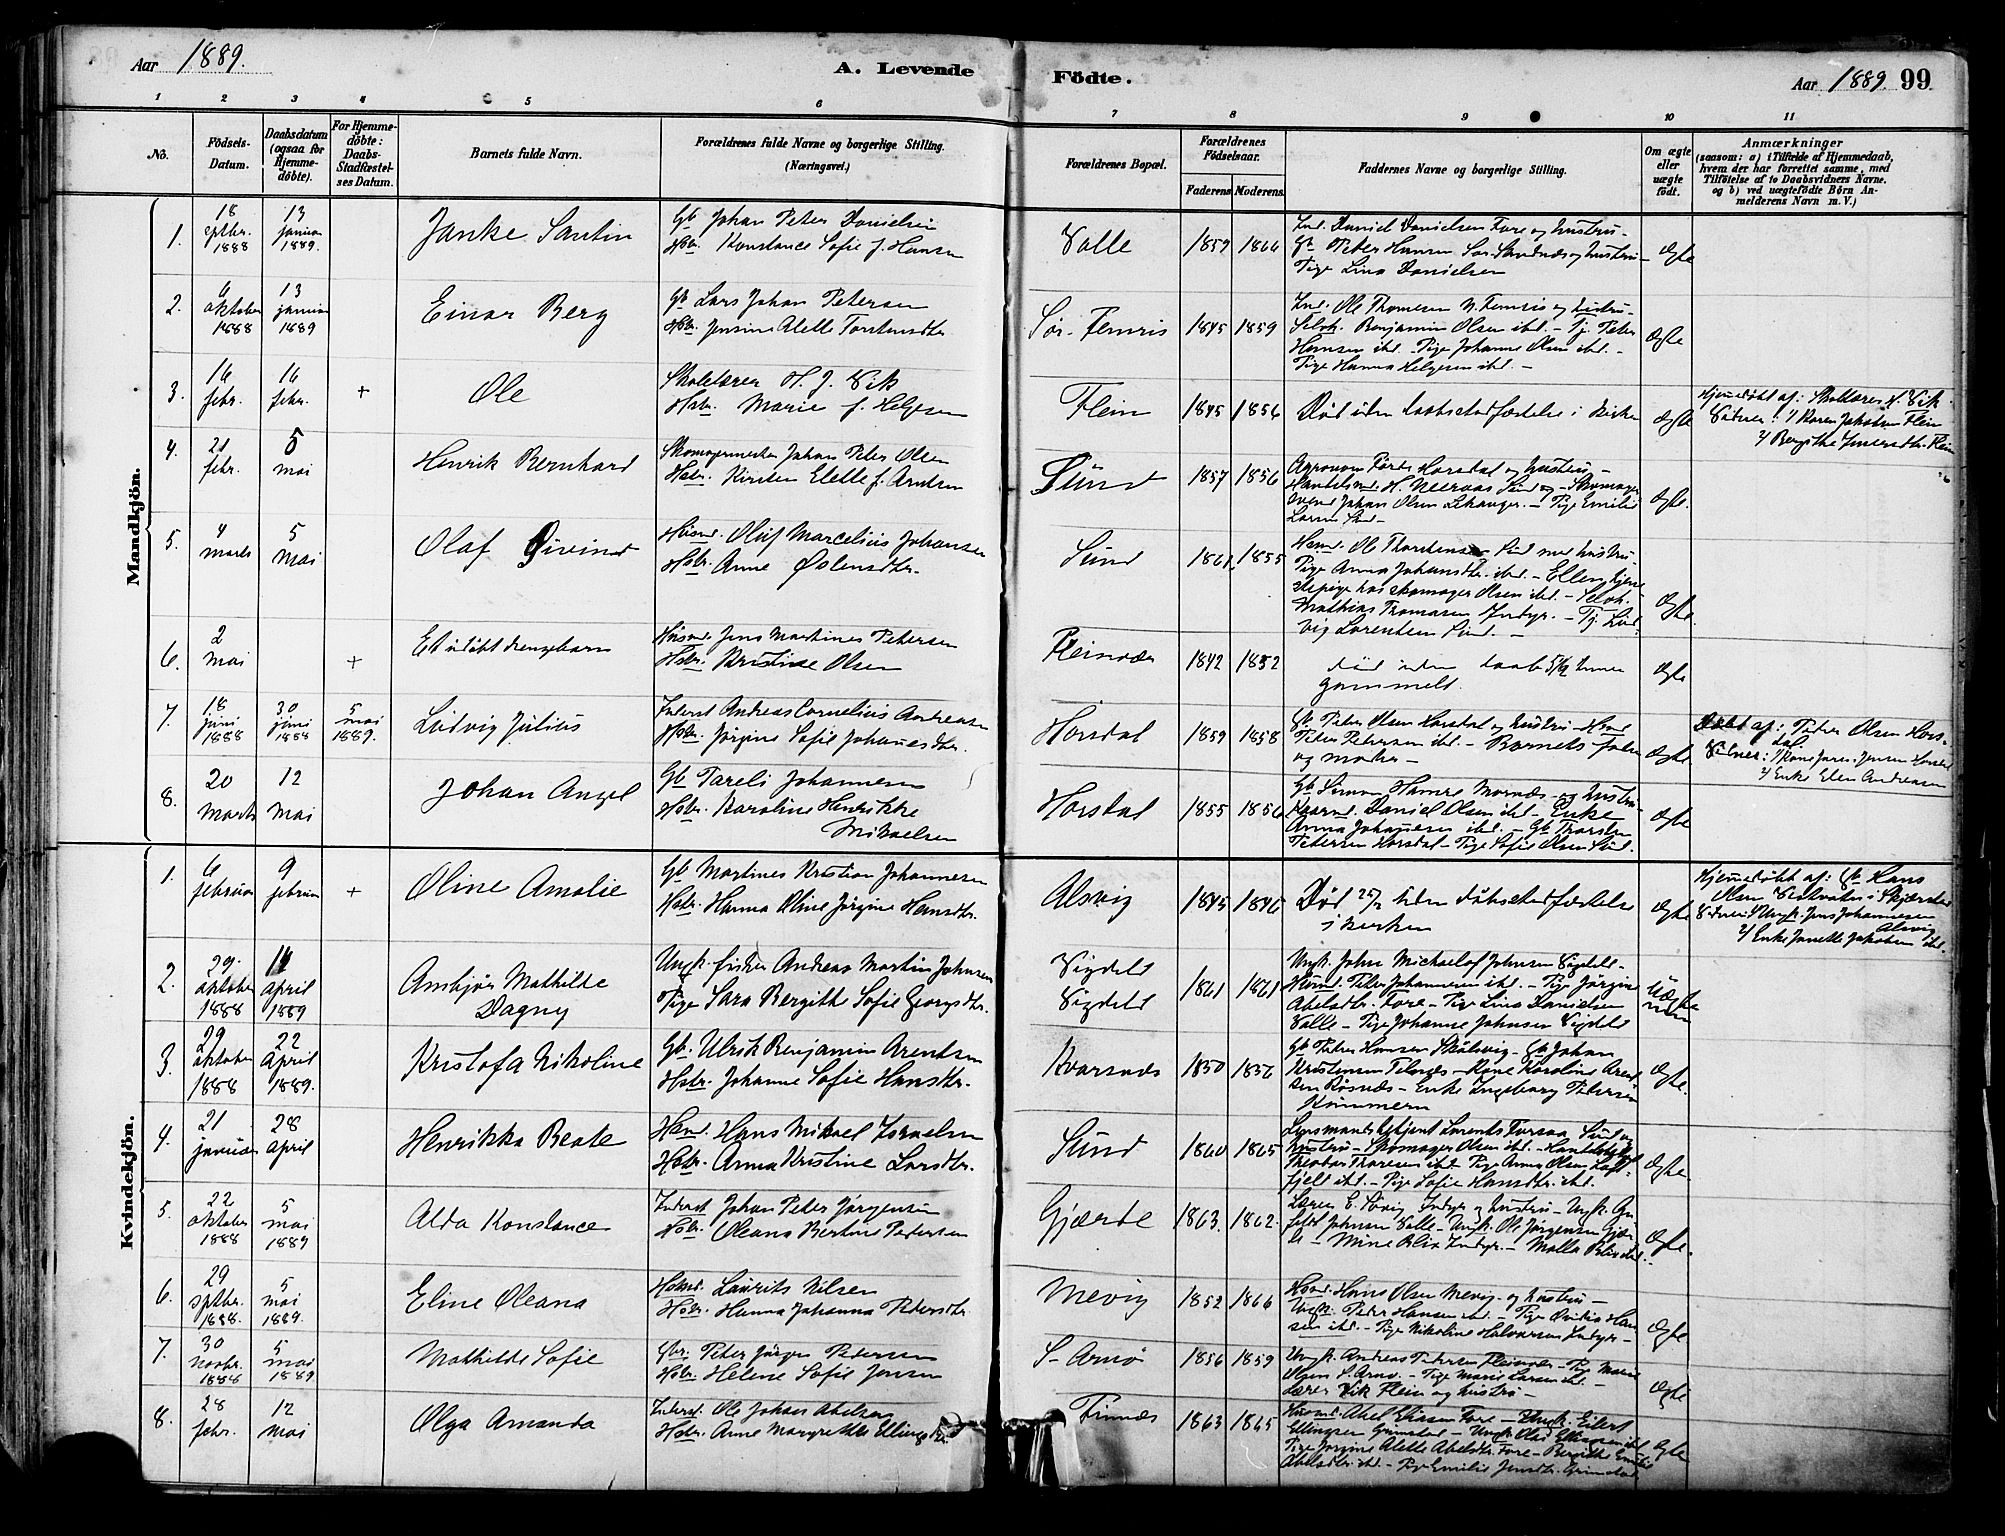 Aar 1889.
A. Levende Födte.
Aar 1889. 99
1 2 3 4 5 6 7 8 9 10 11
No.
Födsels-Datum.
Daabsdatum (ogsaa for Hjemme-döbte).
For Hjemme-döbte: Daabs-Stadfæstel-ses Datum.
Barnets fulde Navn.
Forældrenes fulde Navne og borgerlige Stilling. (Næringsvei.)
Forældrenes Bopæl.
Forældrenes Födselsaar.
Faderens. Moderens.
Faddernes Navne og borgerlige Stilling.
Om ægte eller uægte födt.
Anmærkninger
(saasom: a) i Tilfælde af Hjemmedaab, hvem der har forrettet samme, med Tilföielse af to Daabsvidners Navne, og b) ved uægtefödte Börn An-melderens Navn m. V.)
Mandkjön.
1. 18 septbr. 1888 13 januar 1889. Janke Santin
Gb Johan Peter Danielsen
Hstr. Konstance Sofie f. Hansen
Valle 1859 1866
Ind. Daniel Danielsen Fore og hustru -
Gb Peter Hansen Sør. og hustru -
Pige Lina Danielsen
Ægte
2. 6 oktober 1888 13 januar 1889 Einar Berg
Gb Lars Johan Petersen
Hstr. Jensine Alette Torstensdtr.
Sør. Femris 1845 1859
Ind. Ole Thomesen N. Femris og hustru -
Selvk. Benjamin Olsen ibd. - Tj. Peter
Hansen ibd. - Pige Johanne Olsen ibd. -
Pige Hanna Helgesen ibd. -
Ægte
3. 16 febr. 16 febr. + Ole
Skolelærer H. J. Vik
Hstr. Marie f. Helgesen
Flein 1845 1856
Død uden daabsstadfæstelse i kirken
Ægte
Hjemmedøbt af: Skolelærer H. Vik
Vidner: 1/ Karen Jakobsen Flein
2/ Bergithe Flein
4. 21 febr. 5 mai Henrik Bernhard
Skomagermester Johan Peter Olsen
Hstr. Kirsten Elette f. Arntsen
Sund 1857 1856
Agronom Horsdal og hustru -
Handelsmd. H. Sund og - Skomager
svend Johan Olsen - Pige Emilie
Larsen Sund -
Ægte.
5. 4 marts 5 mai Olaf Øivind
Husmd. Oluf Marcelius Johansen
Hstr. Anne Østensdtr.
Sund 1861 1855
Husmd. Ole Thorstensen Sund med hustru -
Pige Anna Johansdtr. ibd. - Ellen
hos skomager Olsen ibd. - Selvk.
Mathias Thomasen Indyr. - Tj. Lud-
vig Lorentsen Sund. -
Ægte.
6. 2 mai + Et udøbt drengebarn
Husmd. Jens Martines Petersen
Hstr. Kristine Olsen
Fleinvær 1842 1852
død uden daab 5 1/2 timer
gammelt.
Ægte
7. 18 juni 1888 30 juni 1888 5 mai 1889. Ludvig Julius
Inderst Andreas Cornelius Andreasen
Hstr. Jørgine Sofie Johanesdtr.
Horsdal 1859 1858
Gb. Peter Olsen Horsdal og hustru -
Peter Petersen ibd. - Barnets fader
og moder -
Ægte
Døbt af: Peter Olsen Hors-
dal.
Vidner: 1/ Jensen Horsdal
2/ Enke Ellen Andreasen
8. 20 marts 12 mai Johan Angel
Gb Johannesen
Hstr. Karoline Henrikke
Mikaelsen
Horsdal 1855 1856
Gb Simon Hansen og hustru -
Daniel Olsen ibd. - Enke
Anna Johannesen ibd. - Gb Thorsten
Petersen Horsdal - Pige Sofie Olsen Sund.
Ægte
Kvindekjön.
1. 6 februar 9 februar + Oline Amalie
Gb Martines Kristian Johannesen
Hstr. Hanna Oline Jørgine Hansdtr.
Alsvig 1845 1846
Død 25/2 uden dåbsstadfæstelse
i kirken
Ægte
Hjemmedøbt af: Gb Hans
Olsen i Skjerstad
Vidner: 1/ Ungk. Jens Johannesen
Alsvig
2/ Enke Janette Jakobsen ibd.
2. 29. oktober 1888 14 april 1889 Ansbjør Mathilde
Dagny
Ungk. fisker Andreas Martin Johnsen
Pige Sara Bergithe Sofie Georgsdtr.
Sigdelt
Sigdelt
1861 1861
Ungk. John Michael Johnsen Sigdelt -
Husmd. Peter Johannesen ibd. - Pige Jørgine
Abelsdtr. Fore - Pige Lina Danielsen
Valle - Pige Johanne Johnsen Sigdelt
Uægte
3. 29 oktober 1888 22 april 1889. Kristofa Nikoline
Gb. Ulrik Benjamin Arentsen
Hstr. Johanne Sofie Hansdtr.
Kvarsnæs 1850 1856
Gb Peter Hansen Skålsvig - Gb Johan
Kristensen - Pige Karoline Arent-
sen - Enke Ingeborg Petersen
Ægte.
4. 21 januar 28 april Henrikka Beate
Hans Mikael
Hstr. Anna Kristine Larsdtr.
Sund 1860 1865
Lensmandsbetjent Lorents Sund og
hustru - Skomager Olsen ibd. -
Thoresen ibd. - Pige Anna Olsen
fjell ibd. - Pige Sofie Hansdtr. ibd.
Ægte
5. 22 oktober 1888 5 mai 1889 Alda Konstance
Inderst Johan Peter Jørgensen
Hstr. Oleana Bertine Pedersen
Gjærde 1863. 1862.
Lærer E. Indyr og hustru - Ungk.
Johnsen Valle - Ungk. Ole Jørgensen Gjær-
de - Mine Blix Indyr. - Malla Blix ibd.
Ægte.
6. 29 septbr. 1888. 5 mai 1889. Eline Oleana
Laurits Nilsen
Hstr. Hanna Johanna Pedersdtr.
Mevig 1852 1866
Hans Olsen Mevig og hustru -
Ungk. Peder Hansen ibd. - Pige Han-
sen ibd. - Pige Nikoline Halvorsen Indyr. -
Ægte
7. 30 novbr. 1888 5 mai 1889 Mathilde Sofie
Gbr. Peter Jørgen Pedersen
Hstr. Helene Sofie Jensen
S. Arnø 1856 1859
Ungk. Andreas Petersen Fleinvær - Pige Marie
Olsen S. Arnø. - Pige Marie Larsen ibd. -
Lærer Vik Flein og hustru -
Ægte
8. 28 febr. 12 mai Olga Amanda
Inderst. Ole Johan Abelsen
Hstr. Anne Margrethe
Finnæs 1863 1865
Husmd. Abel Eliasen Fore - Ungk. Eilert
Ellingsen Grimstad - Ungk. Olai Ellingsen ibd.
Pige Jørgine Alette Abelsdtr. Fore - Bergithe Emilie
Abelsdtr. ibd. - Pige Emilie Jensdtr. Grimstad
Ægte